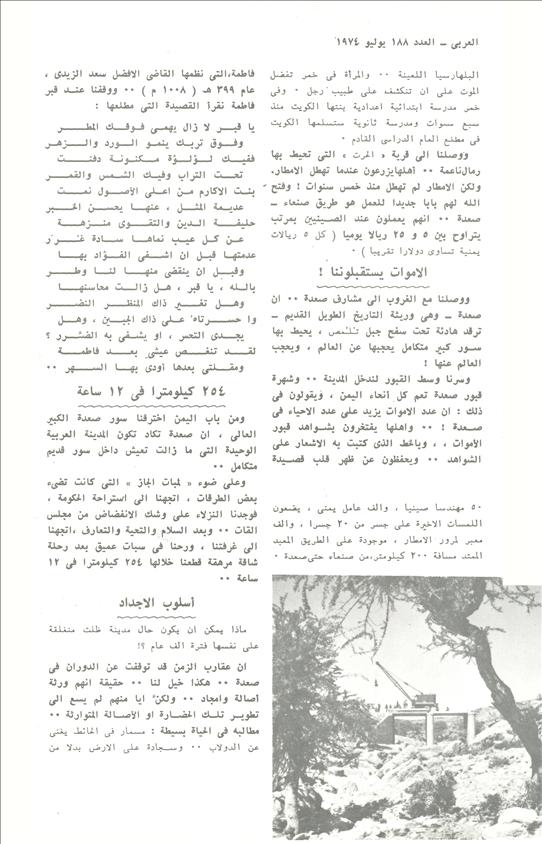 العربى – العدد ١٨٨ يوليو ١٩٧٤
البلهارسيا اللعينة ٠٠ والمرأة فى خمر تفضل
الموت على ان تنكشف على طبيب رجل ٠ وفى
خمر مدرسة ابتدائية اعدادية بنتها الكويت منذ
سبع سنوات ومدرسة ثانوية ستسلمها الكويت
فى مطلع العام الدراسى القادم ٠
ووصلنا الى قرية « الحرث » التى تحيط بها
رمال ناعمة ٠٠ أهلها يزرعون عندما تهطل الامطار٠
ولكن الامطار لم تهطل منذ خمس سنوات ! وفتح
الله لهم بابا جديدا للعمل هو طريق صنعاء –
صعدة ٠٠ انهم يعملون عند الصينيين بمرتب
يتراوح بين ٥ و ٢٥ ريالا يوميا ( كل ٥ ريالات
يمنية تساوى دولارا تقريبا ) ٠
الاموات يستقبلوننا !
ووصلنا مع الغروب الى مشارف صعدة ٠٠ ان
صعدة – وهى وريثة التاريخ الطويل القديم –
ترقد هادئة تحت سفح جبل تلمص ، يحيط بها
سور كبير متكامل يحجبها عن العالم ، ويحجب
العالم عنها !
وسرنا وسط القبور لندخل المدينة ٠٠ وشهرة
قبور صعدة تعم كل انحاء اليمن ، ويقولون فى
ذلك : ان عدد الاموات يزيد على عدد الاحياء فى
صعدة ! ٠٠ واهلها يفتخرون بشواهد قبور
الأموات ، ، وبالخط الذى كتبت به الاشعار على
الشواهد ٠٠ ويحفظون عن ظهر قلب قصيدة
٥٠ مهندسا صينيا ، والف عامل يمنى ، يضعون
اللمسات الاخيرة على جسر من ٢٠ جسرا ، والف
معبر لمرور الامطار ، موجودة على الطريق المعبد
الممتد مسافة ٢٠٠ كيلومتر، من صنعاء حتى صعدة ٠
فاطمة، التى نظمها القاضى الافضل سعد الزيدى ،
عام ٣٩٩ هـ ( ١٠٠٨ م ) ٠٠ ووقفنا عند قبر
فاطمة نقرأ القصيدة التى مطلعها :
يا قبر لا زال يهمى فوقك المطر
وفوق تربك ينمو الورد والزهر
ففيك لؤلؤة مكنونة دفنت
تحت التراب وفيك الشمس والقمر
بنت الاكارم من اعلى الأصول نمت
عديمة المثل ، عنها يحسن الخبر
حليفة الدين والتقوى منزهة
عن كل عيب نماها سادة غرر
عدمتها قبل ان اشفى الفؤاد بها
وقبل ان ينقضى منها لنا وطر
بالله ، يا قبر ، هل زالت محاسنها
وهل تغير ذاك المنظر النضر
وا حسرتاه على ذاك الجبين ، وهل
يجدى التحسر ، او يشفى به الضرر ؟
لقد تنغص عيشى بعد فاطمة
ومقلتى بعدها أودى بها السهر ٠٠
٢٥٤ كيلومترا فى ١٢ ساعة
ومن باب اليمن اخترقنا سور صعدة الكبير
العالى ، ان صعدة تكاد تكون المدينة العربية
الوحيدة التى ما زالت تعيش داخل سور قديم
متكامل ٠٠
وعلى ضوء « لمبات الجاز » التى كانت تضىء
بعض الطرقات ، اتجهنا الى استراحة الحكومة ،
فوجدنا النزلاء على وشك الانفضاض من مجلس
القات ٠٠ وبعد السلام والتحية والتعارف ، اتجهنا
الى غرفتنا ، ورحنا فى سبات عميق بعد رحلة
شاقة مرهقة قطعنا خلالها ٢٥٤ كيلومترا فى ١٢
ساعة ٠٠
أسلوب الاجداد
ماذا يمكن ان يكون حال مدينة ظلت منغلقة
على نفسها فترة الف عام ؟!
ان عقارب الزمن قد توقفت عن الدوران فى
صعدة ٠٠ هكذا خيل لنا ٠٠ حقيقة انهم ورثة
أصالة وامجاد ٠٠ ولكن ايا منهم لم يسع الى
تطوير تلك الحضارة او الأصالة المتوارثة ٠٠
مطالبه فى الحياة بسيطة : مسمار فى الحائط يغنى
عن الدولاب ٠٠ وسجادة على الارض بدلا من